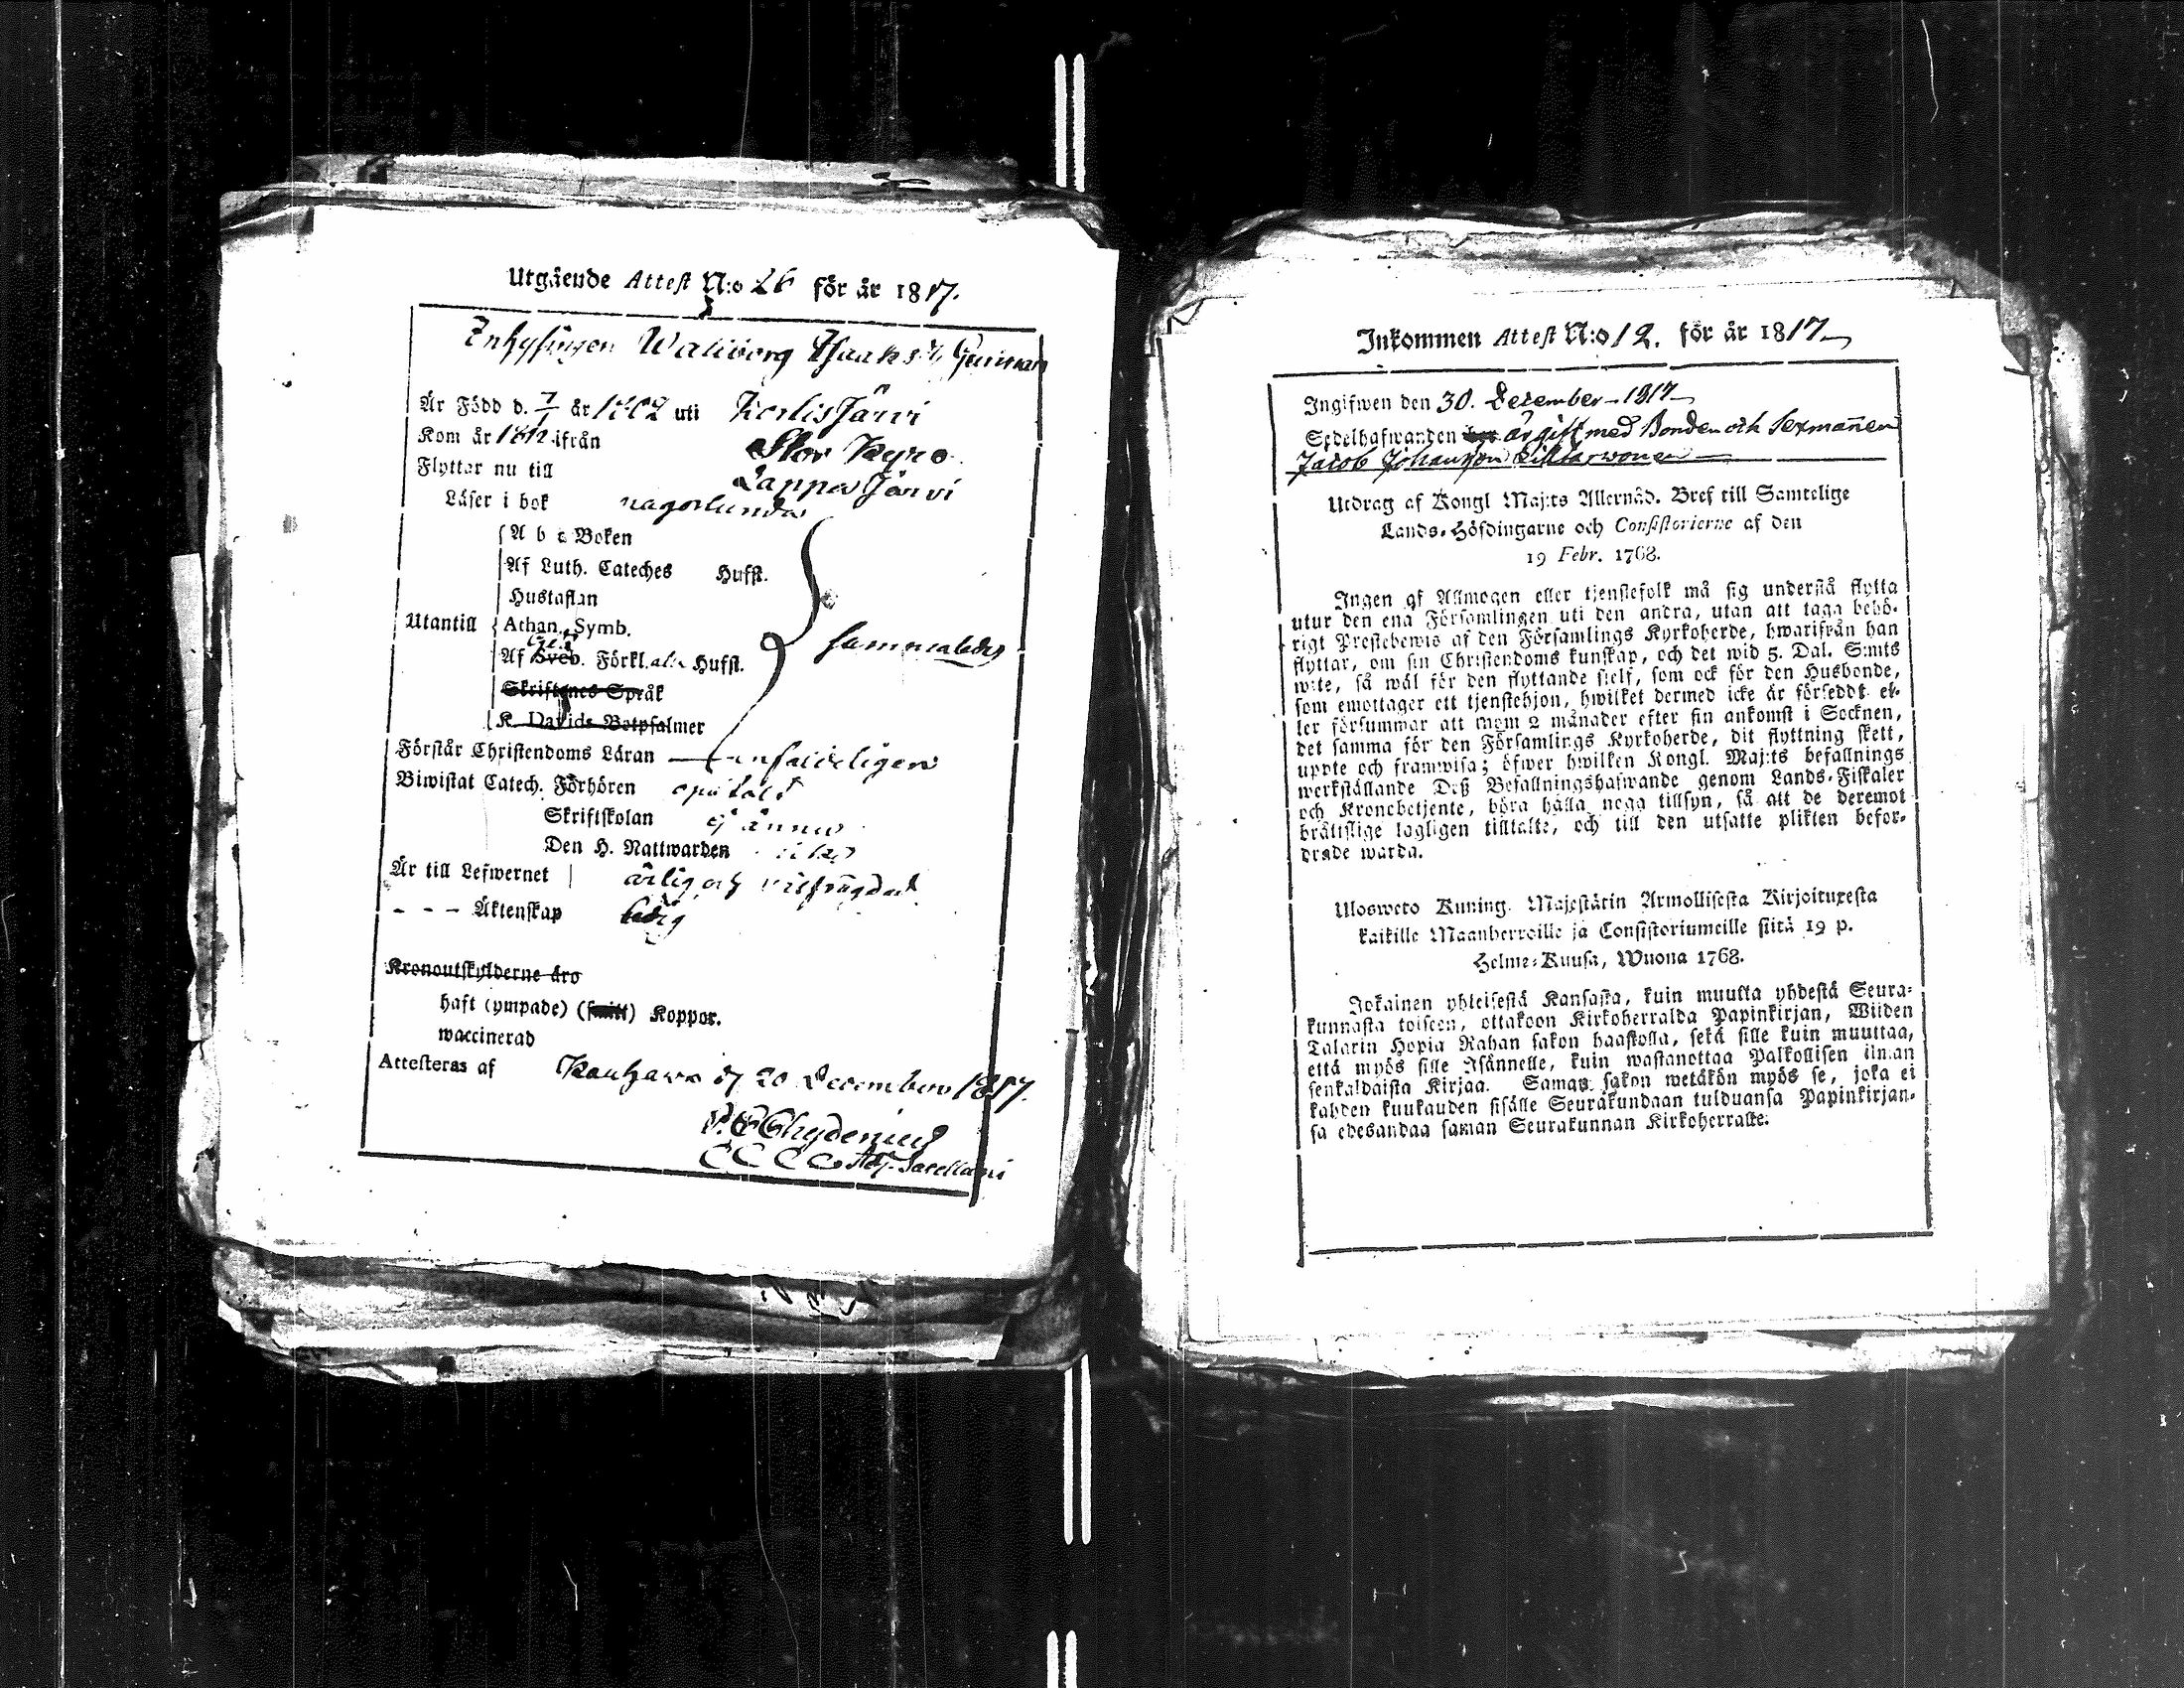 Utgående Attest N:o 26 för år 1817.
Inhysingen Walborg Isaks dr
Är Född d. 7/1 år 1762 uti KortisJärvi
Kom år 1812 ifrån Stor Kyro
Flyttar nu till LappoJärvi
Läser i bok någorlunda
A b c Boken
Af Luth. Cateches Hufst.
Hustaflan
Utantill Athan. Symb. sammaledes
Af Sveb. Förkl. alla Hufst.
Skriftenes Språk
K. Davids Botpsalmer
Förstår Christendoms Läran enfaldeligen
Biwistat Catech. Förhören
Skriftskolan
Den H. Nattwarden
Är till Lefwernet ärlig och
- - - Äktenskap ledig
Kronoutskylderne äro
haft (ympade) Koppor.
waccinerad
Attesteras af Kauhava d 20 December 1817.
Chydenius
Adj. Sacellani
Inkommen Attest N:o 12. för år 1817
Ingifwen den 30. December 1817
Sedelhafwanden är gift med Bonden och Sexmannen
Jacob Johansson
Utdrag af Kongl Maj:ts Allernåd. Bref till Samtelige
Lands-Höfdingarne och Consistorierne af den
19 Febr. 1768.
Ingen af Allmogen eller tjenstefolk må sig understå flytta
utur den ena Församlingen uti den andra, utan att taga behö-
rigt Prestebewis af den Församlings Kyrkoherde, hwarifrån han
flyttar, om sin Christendoms kunskap, och det wid 5. Dal. S:mts
wite, så wäl för den flyttande sjelf, som ock för den Husbonde,
som emottager ett tjenstehjon, hwilket dermed icke är försedt el-
ler försummar att inom 2 månader efter sin ankomst i Socknen,
det samma för den Församlings Kyrkoherde, dit flyttning skett,
uppte och framwisa; öfwer hwilken Kongl. Maj:ts befallnings
werkställande Deß Befallningshafwande genom Lands-Fiskaler
och Kronobetjente, böra hålla noga tillsyn, så att de deremot
bråttslige lagligen tilltalte, och till den utsatte plikten befor-
drade warda.
Ulosweto Kuning. Majestätin Armollisesta Kirjoituxesta
kaikille Maanherroille ja Consistoriumeille siitä 19 p.
Helme-Kuusa, Wuona 1768.
Jokainen yhteisestä Kansasta, kuin muutta yhdestä Seura-
kunnasta toiseen, ottakoon Kirkoherralda Papinkirjan, Wiiden
Talarin Hopia Rahan sakon haastolla, sekä sille kuin muuttaa,
että myös sille Isännelle, kuin wastanottaa Palkollisen ilman
senkaldaista Kirjaa. Saman sakon wetäkön myös se, joka ei
kahden kuukauden sisälle Seurakundaan tulduansa Papinkirjan-
sa edesandaa saman Seurakunnan Kirkoherralle.